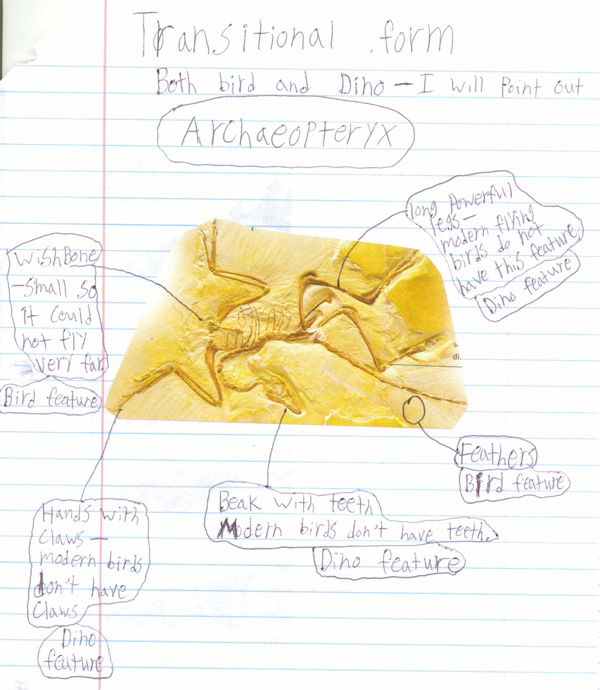 Transitional form
Both bird and Dino — I will Point out
Archaeopteryx
long powerful
legs —
modern flying
birds do not
have this feature
Dino feature
WishBone
-Small so
it could
not fly
very far
Bird feature
Feathers
Bird feature
Beak with teeth
Modern birds don't have teeth.
Dino feature
Hands with
claws —
modern birds
Don't have
Claws
Dino
feature
di.